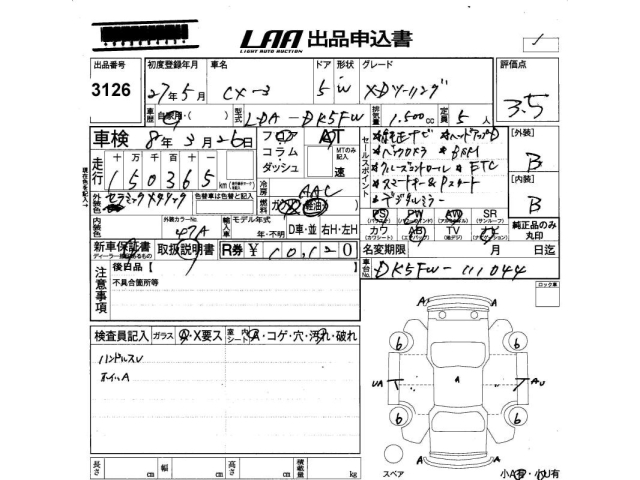 LAA 出品申込書
LIGHT AUTO AUCTION
出品番号 初度登録年月 車名 ドア 形状 グレード 評価点
3126 27年5月 CX-3 5 W XDツーリング 3.5
車歴 自家用・( ) 型式 LDA-DK5FW 排気量 1.500cc 定員 5人
車検 8年3月26日 フロア AT
コラム MTのみ記入
ダッシュ 速
走行 十万千百十
150365 km
冷房 AAC
燃料 ガソリン 軽油
セールスポイント
*純正ナビ *ヘッドアップD
*バックカメラ *BSM
*クルーズコントロール *ETC
*スマートキー&Pスタート
*デジタルミラー
【外装】
B
【内装】
B
外装色 セラミックメタリック 色替車は色替と記入
外装カラーNo. 47A
輸入車 モデル年式 年・不明 D車・並 右H・左H
PS PW AW SR
カワ AB TV ナビ
純正品のみ丸印
新車保証書 取扱説明書 R券 ¥ 10,120
ディーラー捺印あるもの
名変期限 月 日迄
車台No. DK5FW-111044
注意事項 後日品【 】
不具合箇所等
ロック車
検査員記入 ガラス A・X要ス 室内シート A・コゲ・穴・汚れ・破れ
ハンドルスレ
ホイルA
A A
6 6
UA A AU
6 6
A A
スペア
長さ cm 幅 cm 高さ cm 積載量 kg
小A有・小U有